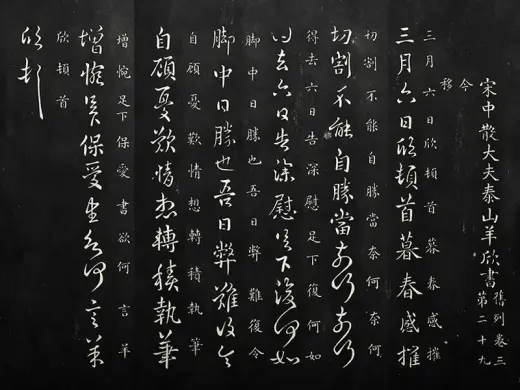 宋中散大夫泰山羊欣書
舊列卷三
第二十九
今
移
三月六日欣頓首暮春感摧
三月六日欣頓首暮春感摧
切割不能自勝當奈何奈何
切割不能自勝當奈何奈何
得去六日告深慰足下復何如
得去六日告深慰足下復何如
腳中日勝也吾日弊難復令
腳中日勝也吾日弊難復令
自顧憂歎情想轉積執筆
自顧憂歎情想轉積執筆
增惋足下保愛書欲何言羊
增惋足下保愛書欲何言羊
欣頓首
欣頓首